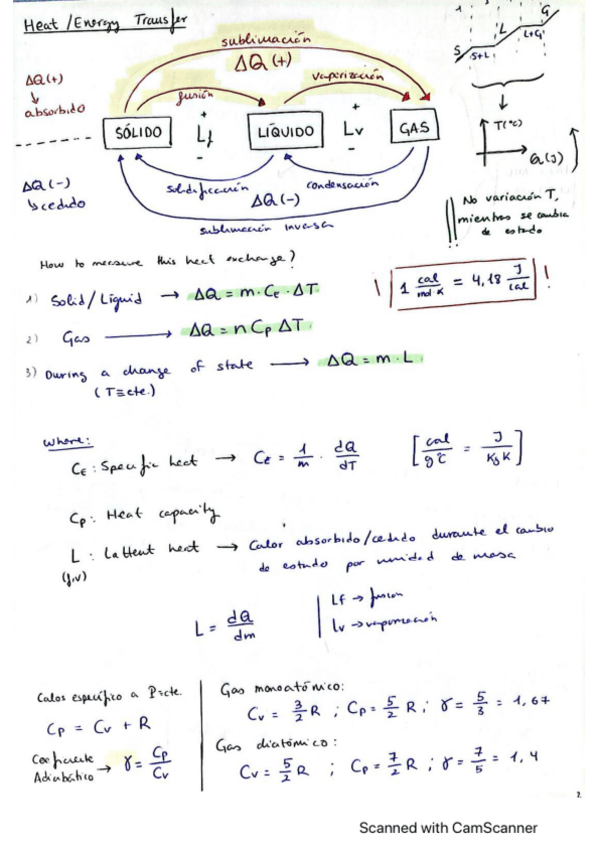 Heat / Energy Transfer
1
G
L
L+G
S
S+L
sublimación
ΔQ (+)
ΔQ (+)
↓
absorbido
fusión
vaporización
+
+
SÓLIDO Lf LÍQUIDO Lv GAS
-
-
T(ºC)
Q(J)
ΔQ (-)
↳ cedido
solidificación
condensación
ΔQ (-)
sublimación inversa
No variación T,
mientras se cambia
de estado
How to measure this heat exchange?
1) Solid/Liquid → ΔQ = m · CE · ΔT
! 1 cal/mol K = 4,18 J/cal !
2) Gas → ΔQ = n Cp ΔT
3) During a change of state → ΔQ = m · L
(T ≡ cte.)
where:
CE : Specific heat → CE = 1/m · dQ/dT [cal/g ºC = J/Kg K]
Cp : Heat capacity
L : Lattent heat → Calor absorbido/cedido durante el cambio
(f,v) de estado por unidad de masa
L = dQ/dm
Lf → fusion
Lv → vaporización
Calor específico a P=cte.
Cp = Cv + R
Coeficiente
Adiabático → γ = Cp/Cv
Gas monoatómico:
Cv = 3/2 R ; Cp = 5/2 R ; γ = 5/3 = 1,67
Gas diatómico:
Cv = 5/2 R ; Cp = 7/2 R ; γ = 7/5 = 1,4
2.
Scanned with CamScanner